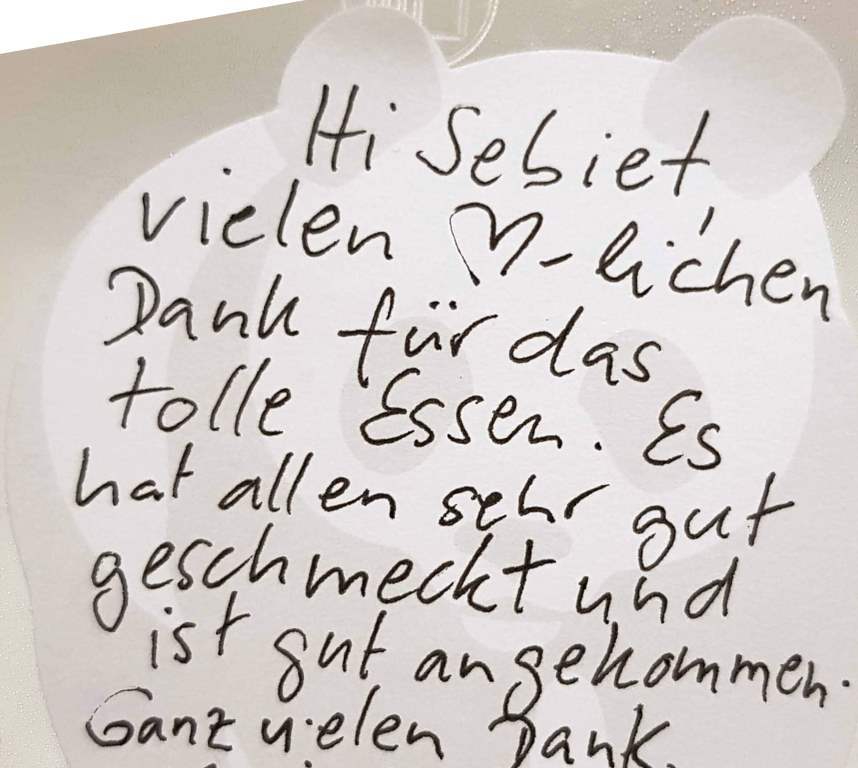 Hi Sebiet,
vielen ♡-lichen
Dank für das
tolle Essen. Es
hat allen sehr gut
geschmeckt und
ist gut angekommen.
Ganz vielen Dank.